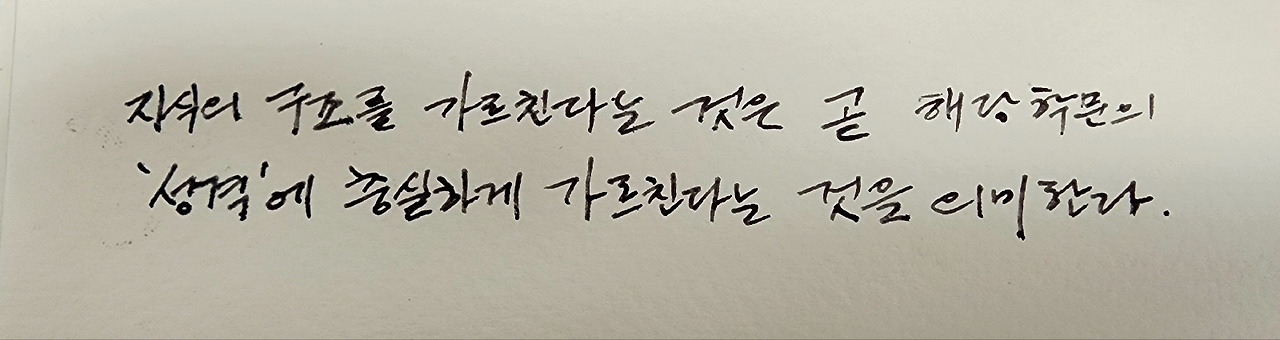 지식의 구조를 가르친다는 것은 곧 해당 학문의
'성격'에 충실하게 가르친다는 것을 의미한다.